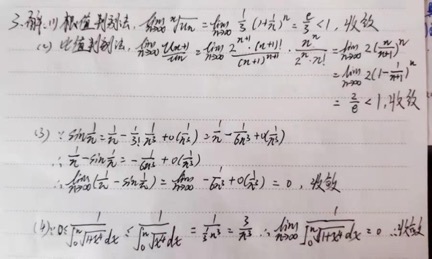 3.解:(1)根值判别法, lim_{n→∞} ⁿ√Un = lim_{n→∞} 1/3 (1+1/n)^n = e/3 < 1, 收敛
(2) 比值判别法, lim_{n→∞} U(n+1)/Un = lim_{n→∞} 2^{n+1}·(n+1)!/(n+1)^{n+1} · n^n/(2^n·n!) = lim_{n→∞} 2(n/(n+1))^n
= lim_{n→∞} 2(1-1/(n+1))^n
= 2/e < 1, 收敛
(3) ∵ sin 1/n = 1/n - 1/3! 1/n³ + o(1/n³) = 1/n - 1/6n³ + o(1/n³)
∴ 1/n - sin 1/n = -1/6n³ + o(1/n³)
∴ lim_{n→∞} (1/n - sin 1/n) = lim_{n→∞} -1/6n³ + o(1/n³) = 0, 收敛
(4) ∵ 0≤ 1/∫₀ⁿ √(1+x⁴) dx ≤ 1/∫₀ⁿ √x⁴ dx = 1/(1/3 n³) = 3/n³ ∴ lim_{n→∞} 1/∫₀ⁿ √(1+x⁴) dx = 0 ∴收敛